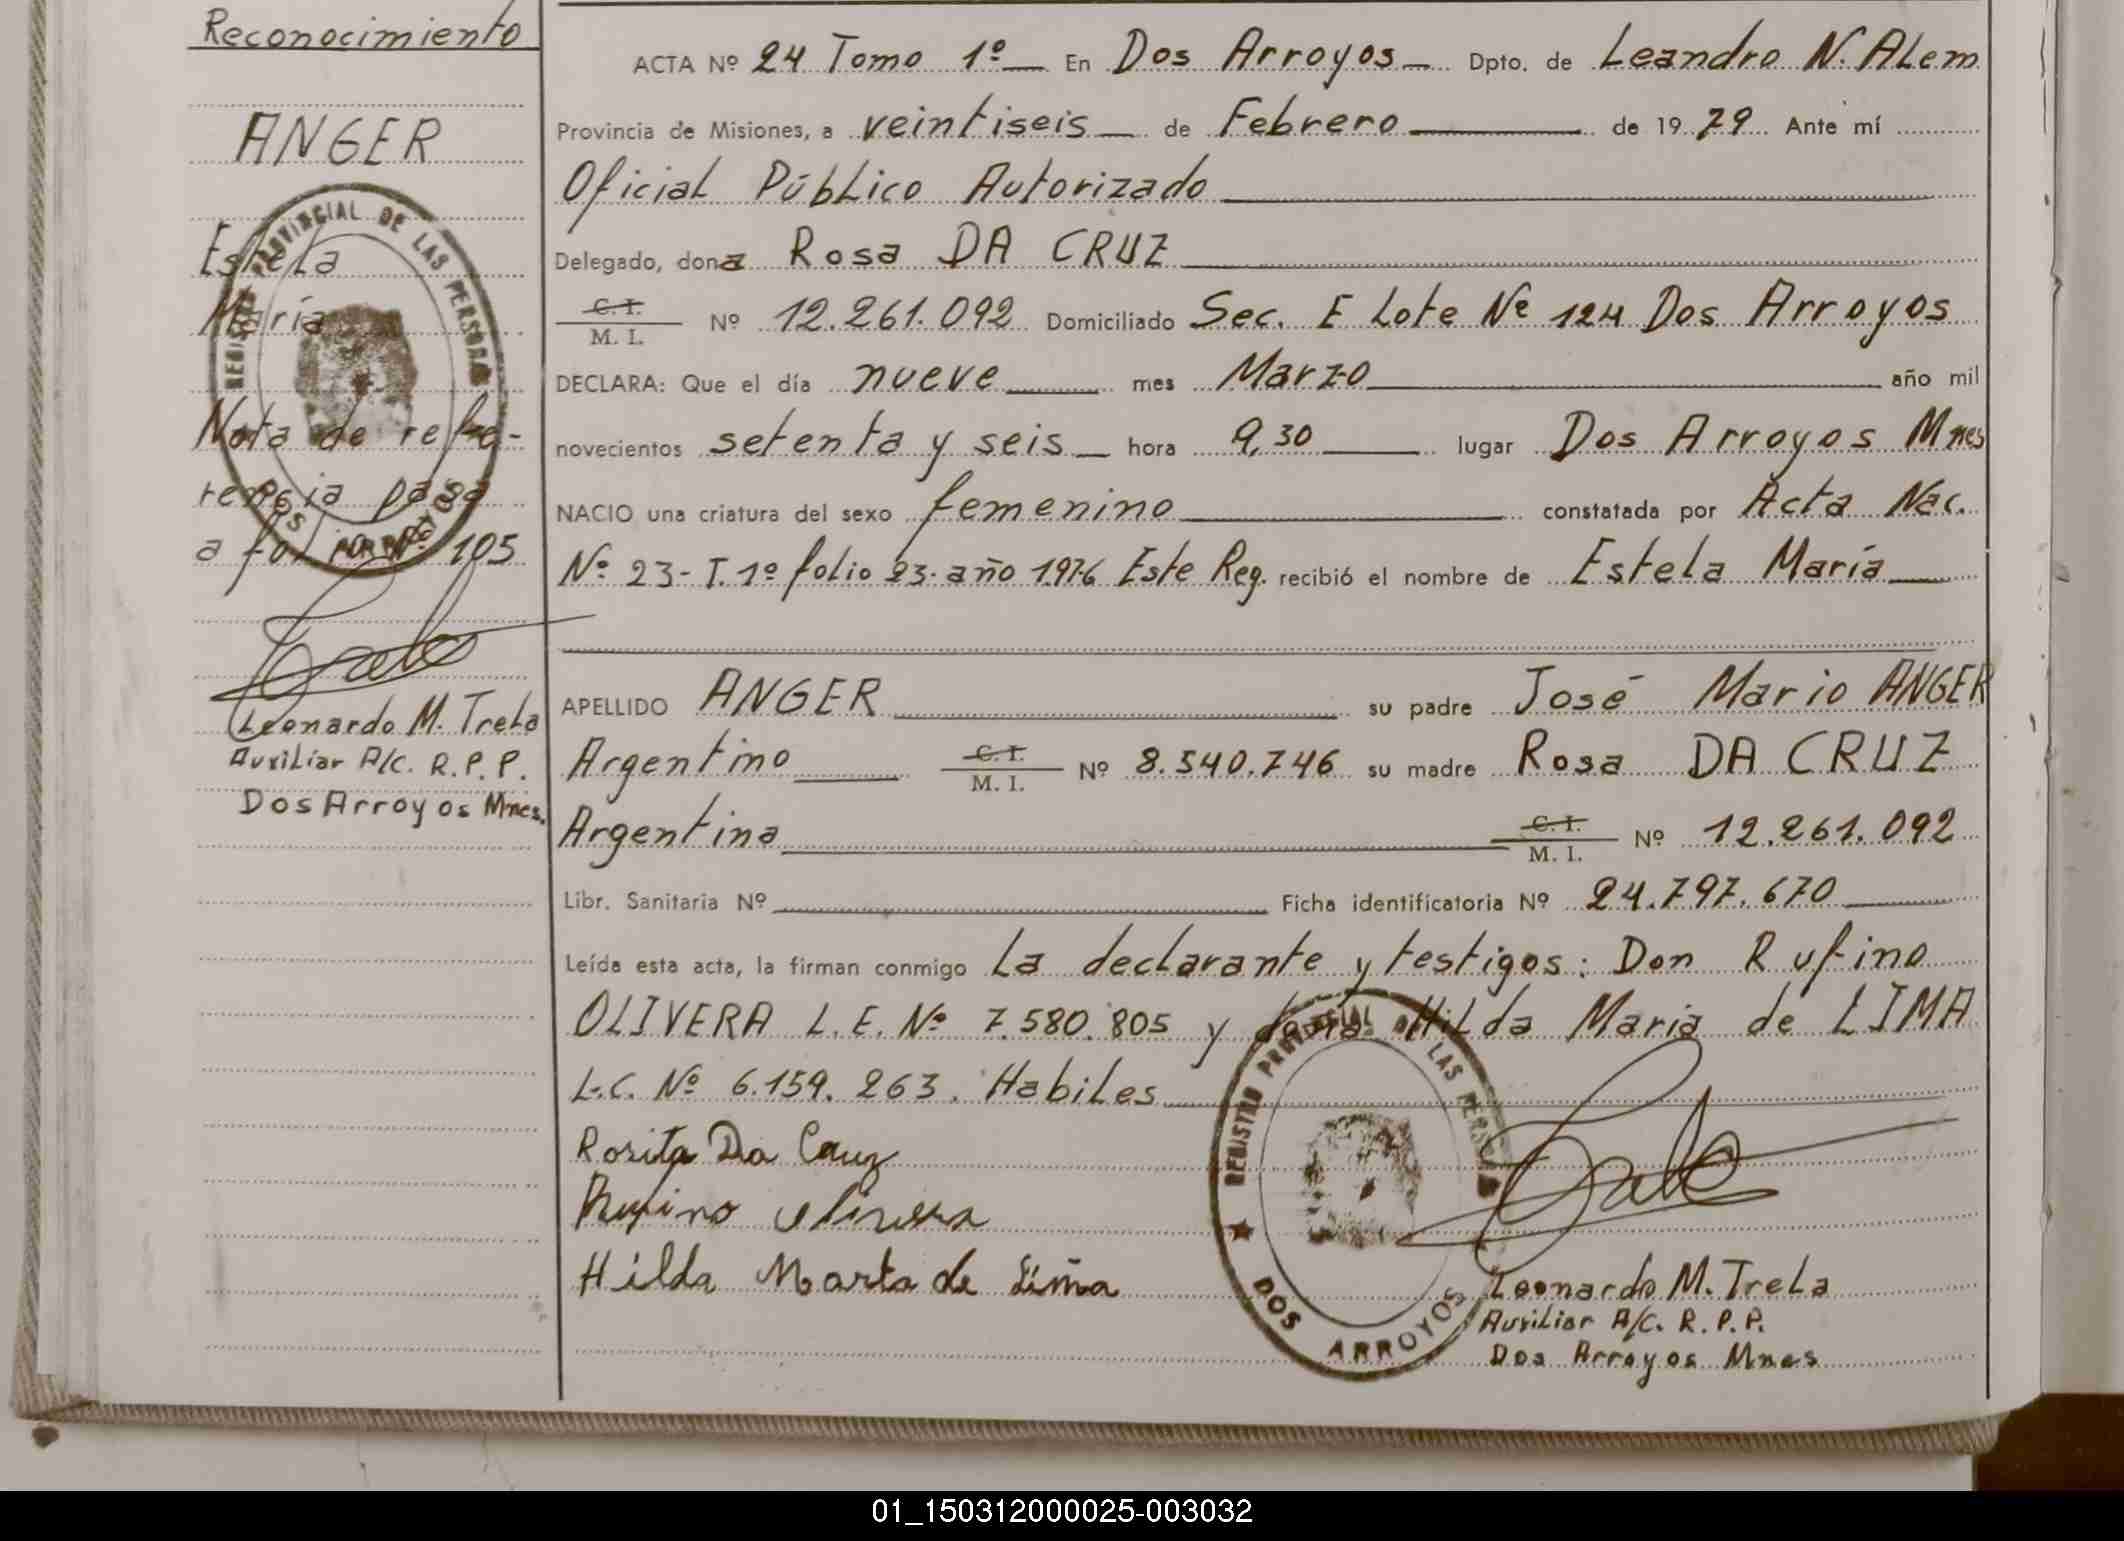 Reconocimiento
ANGER
Estela
María
Nota de refe-
rencia pasa
a fol Nº 105
Leonardo M. Trela
Auxiliar A/C. R.P.P.
Dos Arroyos Mnes.
REGISTRO PROVINCIAL DE LAS PERSONAS
DOS ARROYOS
ACTA Nº 24 Tomo 1º En Dos Arroyos Dpto. de Leandro N. ALem
Provincia de Misiones, a veintiseis de Febrero de 1979 Ante mí
Oficial Público Autorizado
Delegado, dona Rosa DA CRUZ
C. I. / M. I. Nº 12.261.092 Domiciliado Sec. E Lote Nº 124 Dos Arroyos
DECLARA: Que el día nueve mes Marzo año mil
novecientos setenta y seis hora 9,30 lugar Dos Arroyos Mnes
NACIO una criatura del sexo femenino constatada por Acta Nac.
Nº 23-T.1º folio 23-año 1976 Este Reg. recibió el nombre de Estela María
APELLIDO ANGER su padre José Mario ANGER
Argentino C. I. / M. I. Nº 8.540.746 su madre Rosa DA CRUZ
Argentina C. I. / M. I. Nº 12.261.092
Libr. Sanitaria Nº Ficha identificatoria Nº 24.797.670
Leída esta acta, la firman conmigo La declarante y testigos: Don Rufino
OLIVERA L.E. Nº 7.580.805 y doña Hilda Maria de LIMA
L.C. Nº 6.159.263. Habiles
Rosita Da Cruz
Rufino Olivera
Hilda Marta de Lima
REGISTRO PROVINCIAL DE LAS PERSONAS
DOS ARROYOS
Leonardo M. Trela
Auxiliar A/C. R.P.P.
Dos Arroyos Mnes
01_150312000025-003032